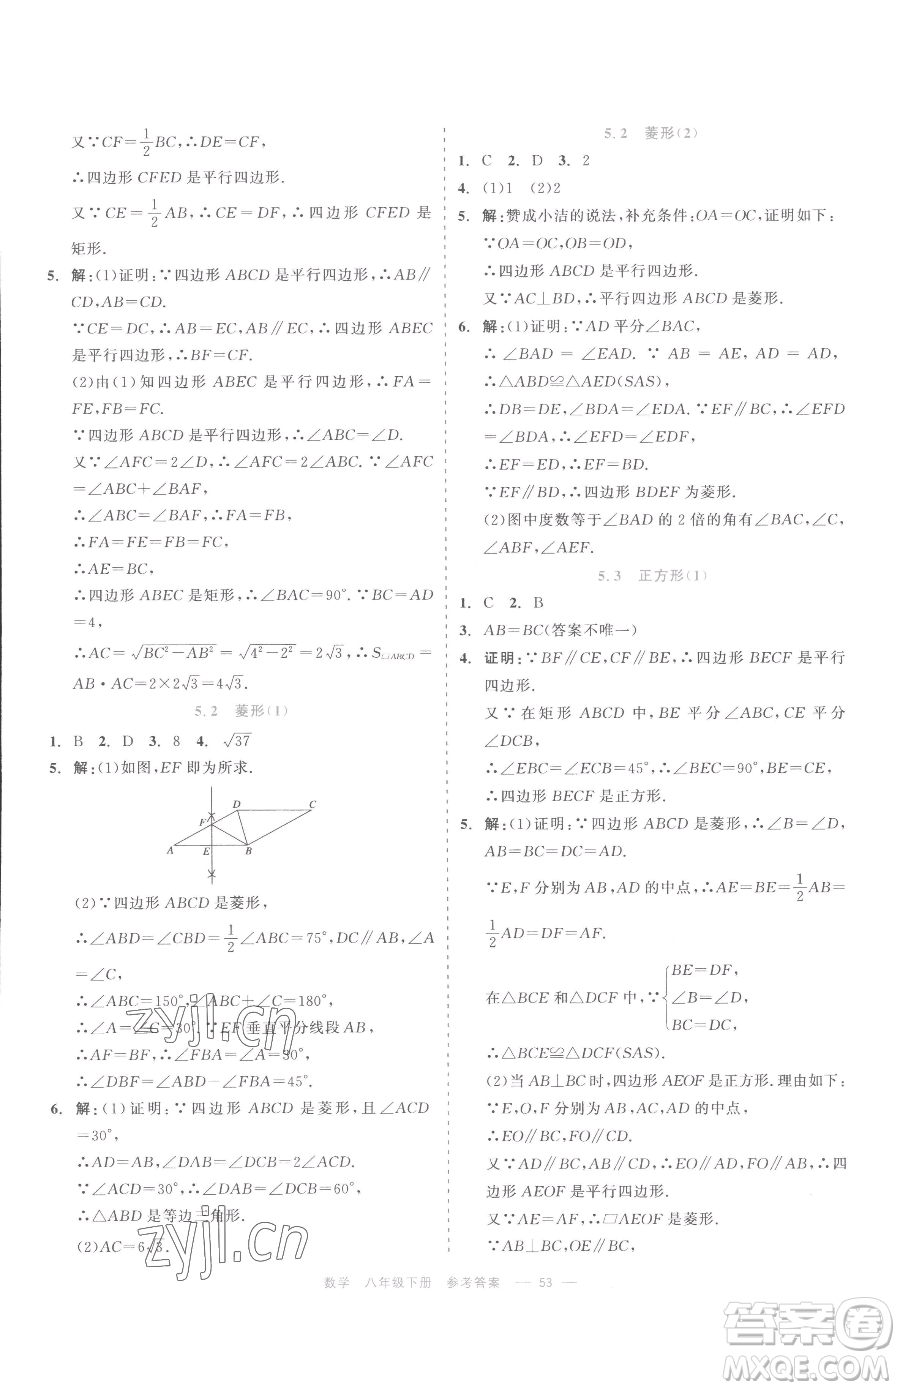 又∵CF=1/2BC,∴DE=CF.
∴四边形 CFED 是平行四边形.
又∵CE=1/2AB,∴CE=DF,∴四边形 CFED 是
矩形.
5. 解:(1)证明:∵四边形 ABCD 是平行四边形,∴AB∥
CD,AB=CD.
∵CE=DC,∴AB=EC,AB∥EC,∴四边形 ABEC
是平行四边形,∴BF=CF.
(2)由(1)知四边形 ABEC 是平行四边形,∴FA=
FE,FB=FC.
∵四边形 ABCD 是平行四边形,∴∠ABC=∠D.
又∵∠AFC=2∠D,∴∠AFC=2∠ABC.∵∠AFC
=∠ABC+∠BAF,
∴∠ABC=∠BAF,∴FA=FB,
∴FA=FE=FB=FC,
∴AE=BC,
∴四边形 ABEC 是矩形,∴∠BAC=90°.∵BC=AD
=4,
∴AC=√(BC²-AB²)=√(4²-2²)=2√3,∴S▱ABCD=
AB·AC=2×2√3=4√3.
5.2 菱形(1)
1. B 2. D 3. 8 4. √37
5. 解:(1)如图,EF 即为所求.
D C
F
A E B
(2)∵四边形 ABCD 是菱形,
∴∠ABD=∠CBD=1/2∠ABC=75°,DC∥AB,∠A
=∠C.
∴∠ABC=150°,∠ABC+∠C=180°,
∴∠A=∠C=30°.∵EF 垂直平分线段 AB,
∴AF=BF,∴∠FBA=∠A=30°.
∴∠DBF=∠ABD-∠FBA=45°.
6. 解:(1)证明:∵四边形 ABCD 是菱形,且∠ACD
=30°,
∴AD=AB,∠DAB=2∠CAB=2∠ACD.
∵∠ACD=30°,∴∠DAB=∠DCB=60°,
∴△ABD 是等边三角形.
(2)AC=6√3.
5.2 菱形(2)
1. C 2. D 3. 2
4. (1)1 (2)2
5. 解:赞成小洁的说法,补充条件:OA=OC,证明如下:
∵OA=OC,OB=OD,
∴四边形 ABCD 是平行四边形.
又∵AC⊥BD,∴平行四边形 ABCD 是菱形.
6. 解:(1)证明:∵AD 平分∠BAC,
∴∠BAD=∠EAD.∵AB=AE,AD=AD,
∴△ABD≌△AED(SAS).
∴DB=DE,∠BDA=∠EDA.∵EF∥BC,∴∠EFD
=∠BDA,∴∠EFD=∠EDF,
∴EF=ED,∴EF=BD.
∵EF∥BD,∴四边形 BDEF 为菱形.
(2)图中度数等于∠BAD 的 2 倍的角有∠BAC,∠C,
∠ABF,∠AEF.
5.3 正方形(1)
1. C 2. B
3. AB=BC(答案不唯一)
4. 证明:∵BF∥CE,CF∥BE,∴四边形 BECF 是平行
四边形.
又∵在矩形 ABCD 中,BE 平分∠ABC,CE 平分
∠DCB,
∴∠EBC=∠ECB=45°,∴∠BEC=90°,BE=CE,
∴四边形 BECF 是正方形.
5. 解:(1)证明:∵四边形 ABCD 是菱形,∴∠B=∠D,
AB=BC=DC=AD.
∵E,F 分别为 AB,AD 的中点,∴AE=BE=1/2AB=
1/2AD=DF=AF.
在△BCE 和△DCF 中,∵{BE=DF,
∠B=∠D,
BC=DC,
∴△BCE≌△DCF(SAS).
(2)当 AB⊥BC 时,四边形 AEOF 是正方形.理由如下:
∵E,O,F 分别是 AB,AC,AD 的中点,
∴EO∥BC,FO∥CD.
又∵BC∥AD,CD∥AB,∴EO∥AD,FO∥AB,∴四
边形 AEOF 是平行四边形.
又∵AE=AF,∴▱AEOF 是菱形.
∵AB⊥BC,OE∥BC,
数学 八年级下册 参考答案 — 53 —
zyjl.cn
zyjl.cn
答案圈
MXQE.COM